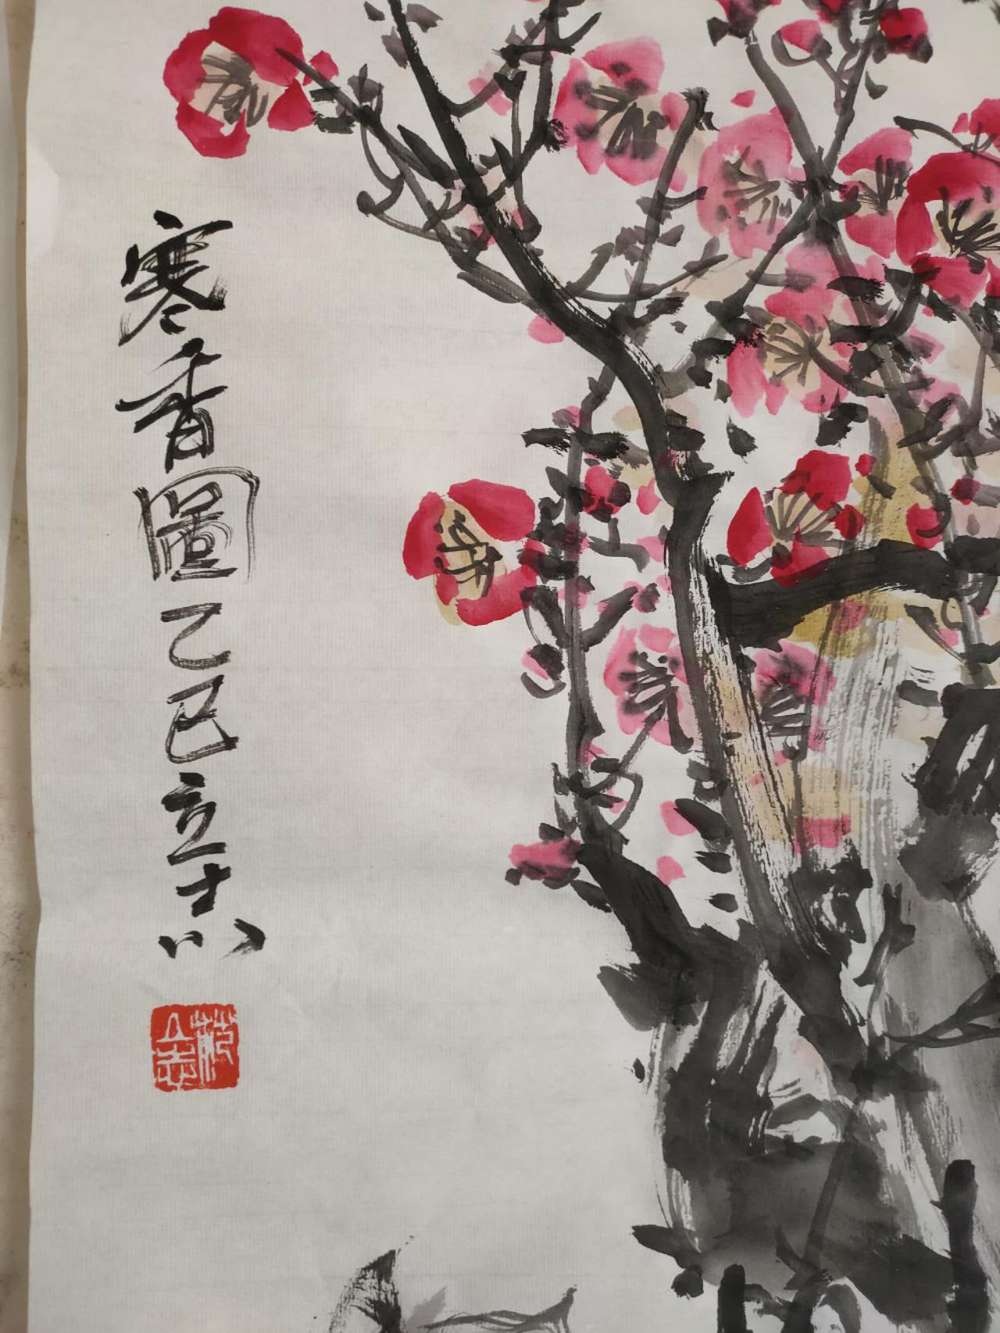 寒香圖乙巳立志